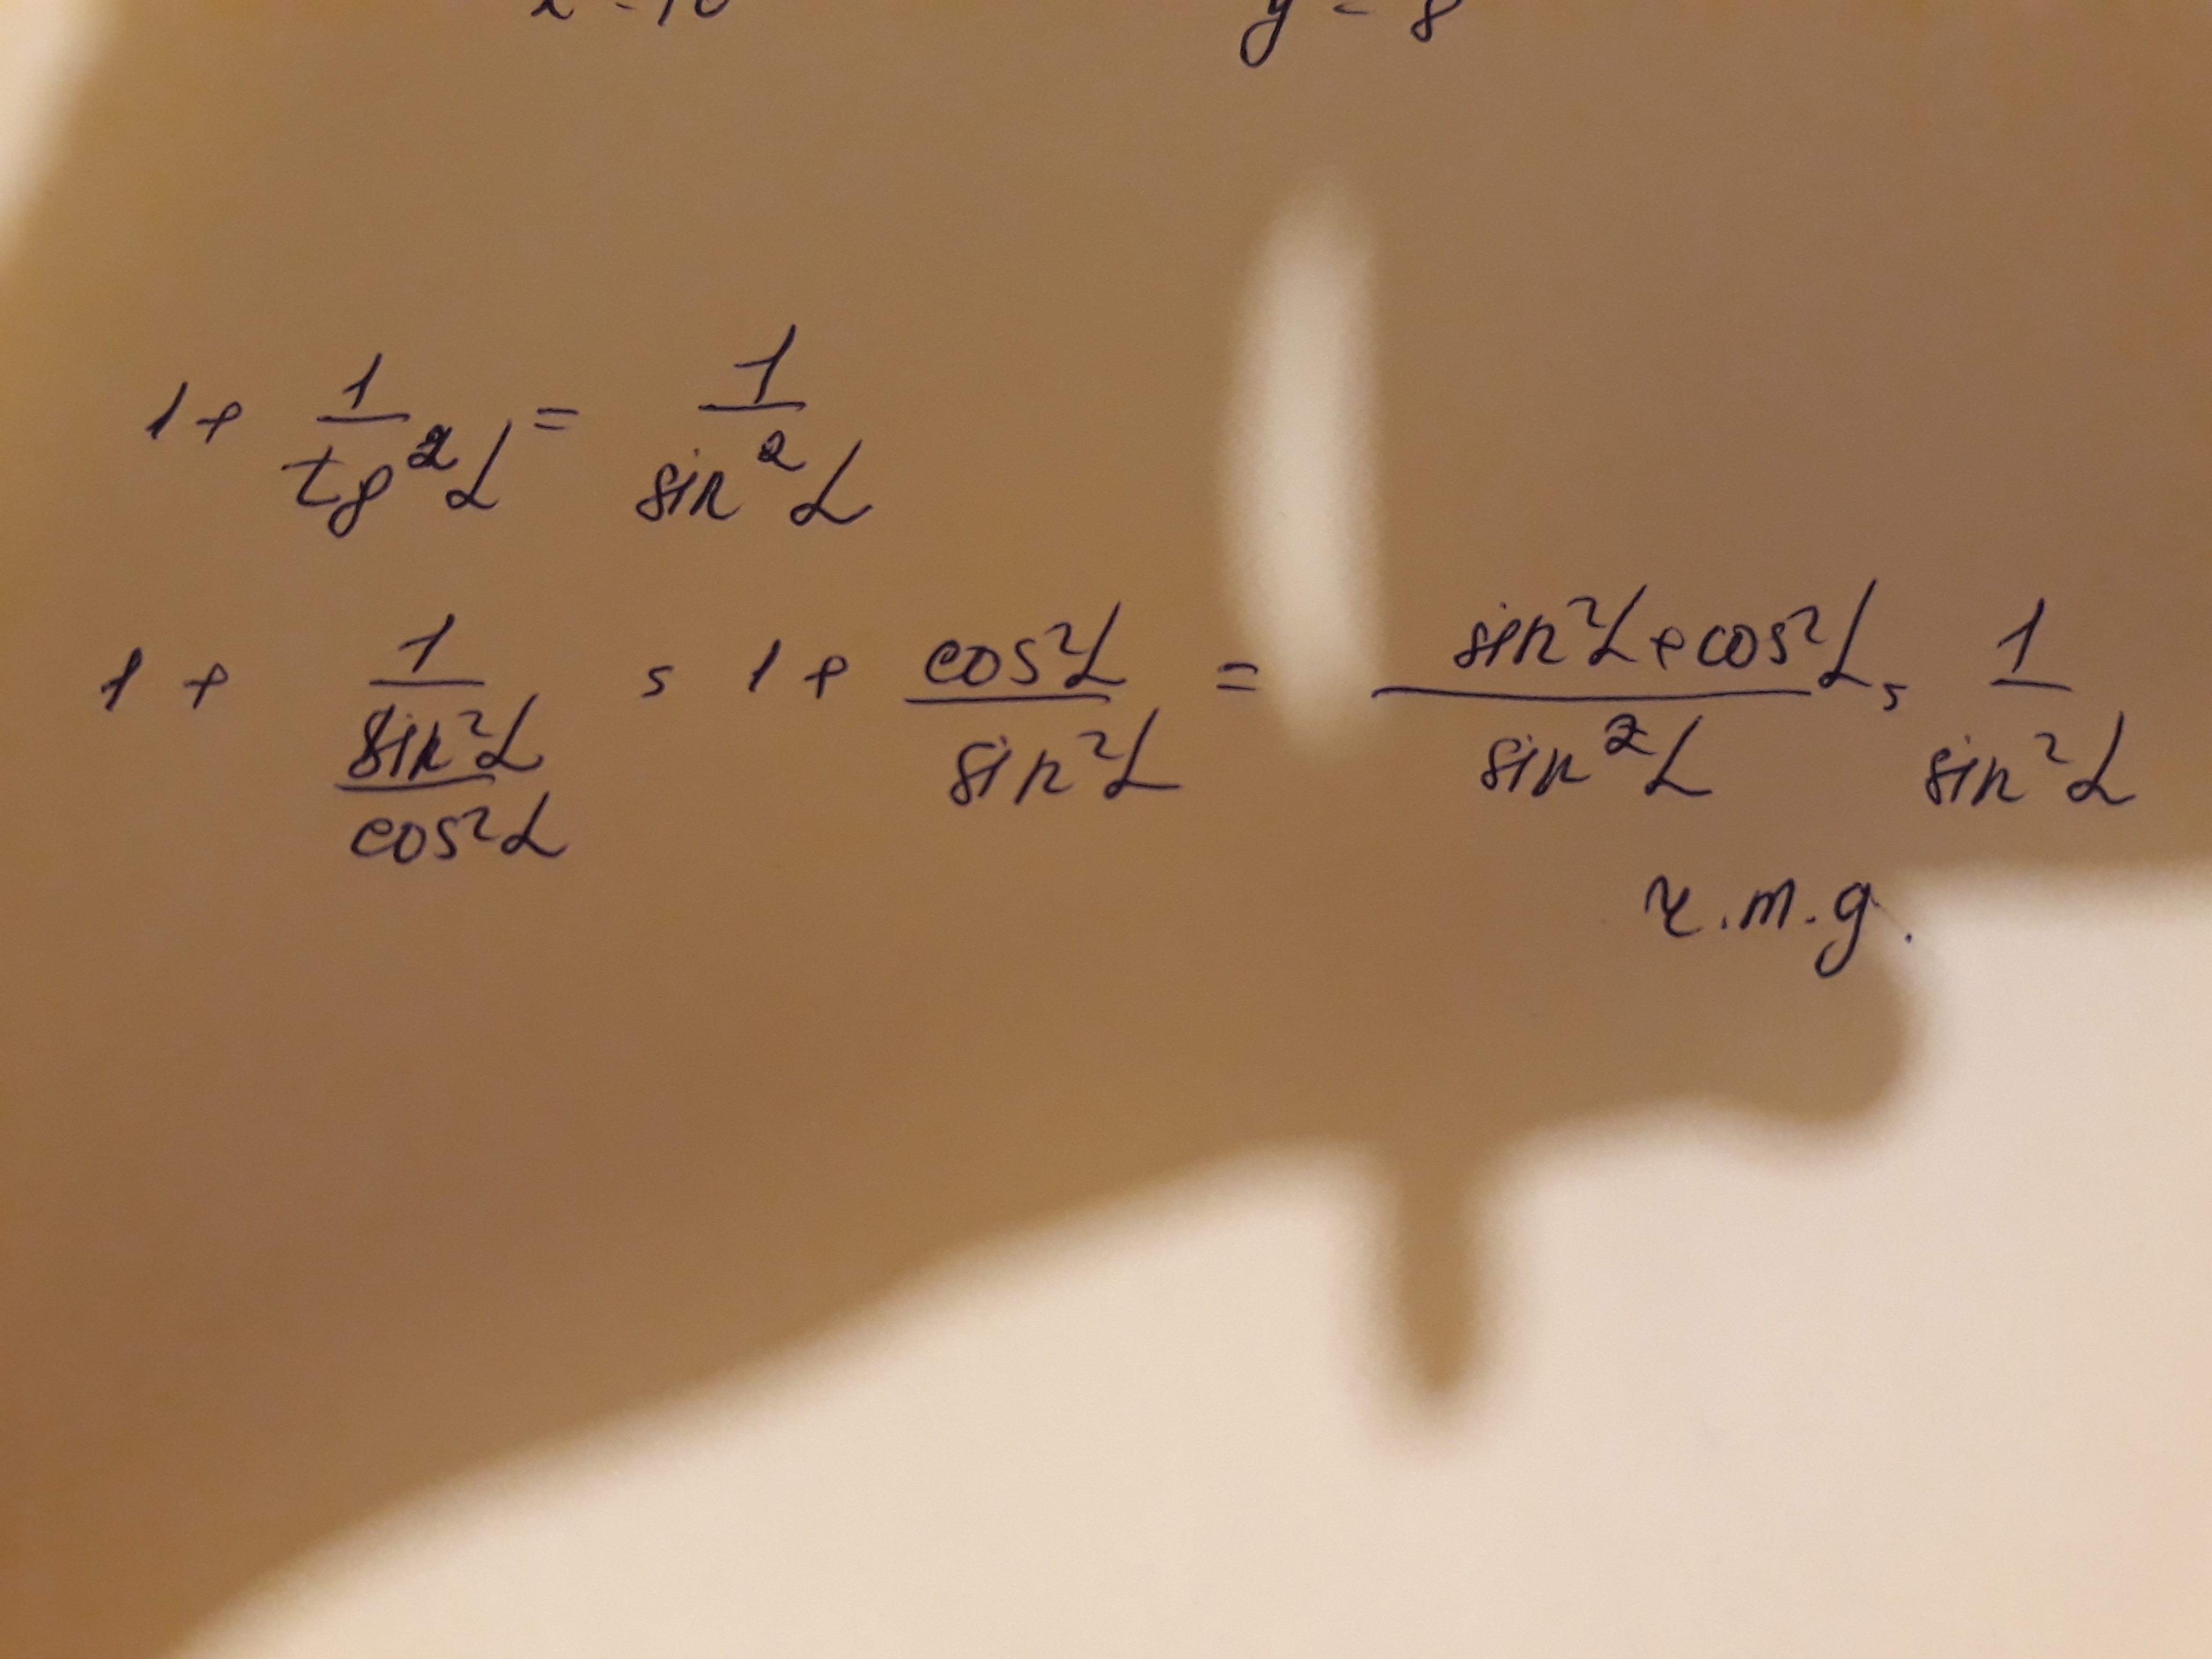 y = 8
1 + 1/tg²α = 1/sin²α
1 + 1/(sin²α/cos²α) = 1 + cos²α/sin²α = (sin²α + cos²α)/sin²α = 1/sin²α
ч.т.д.